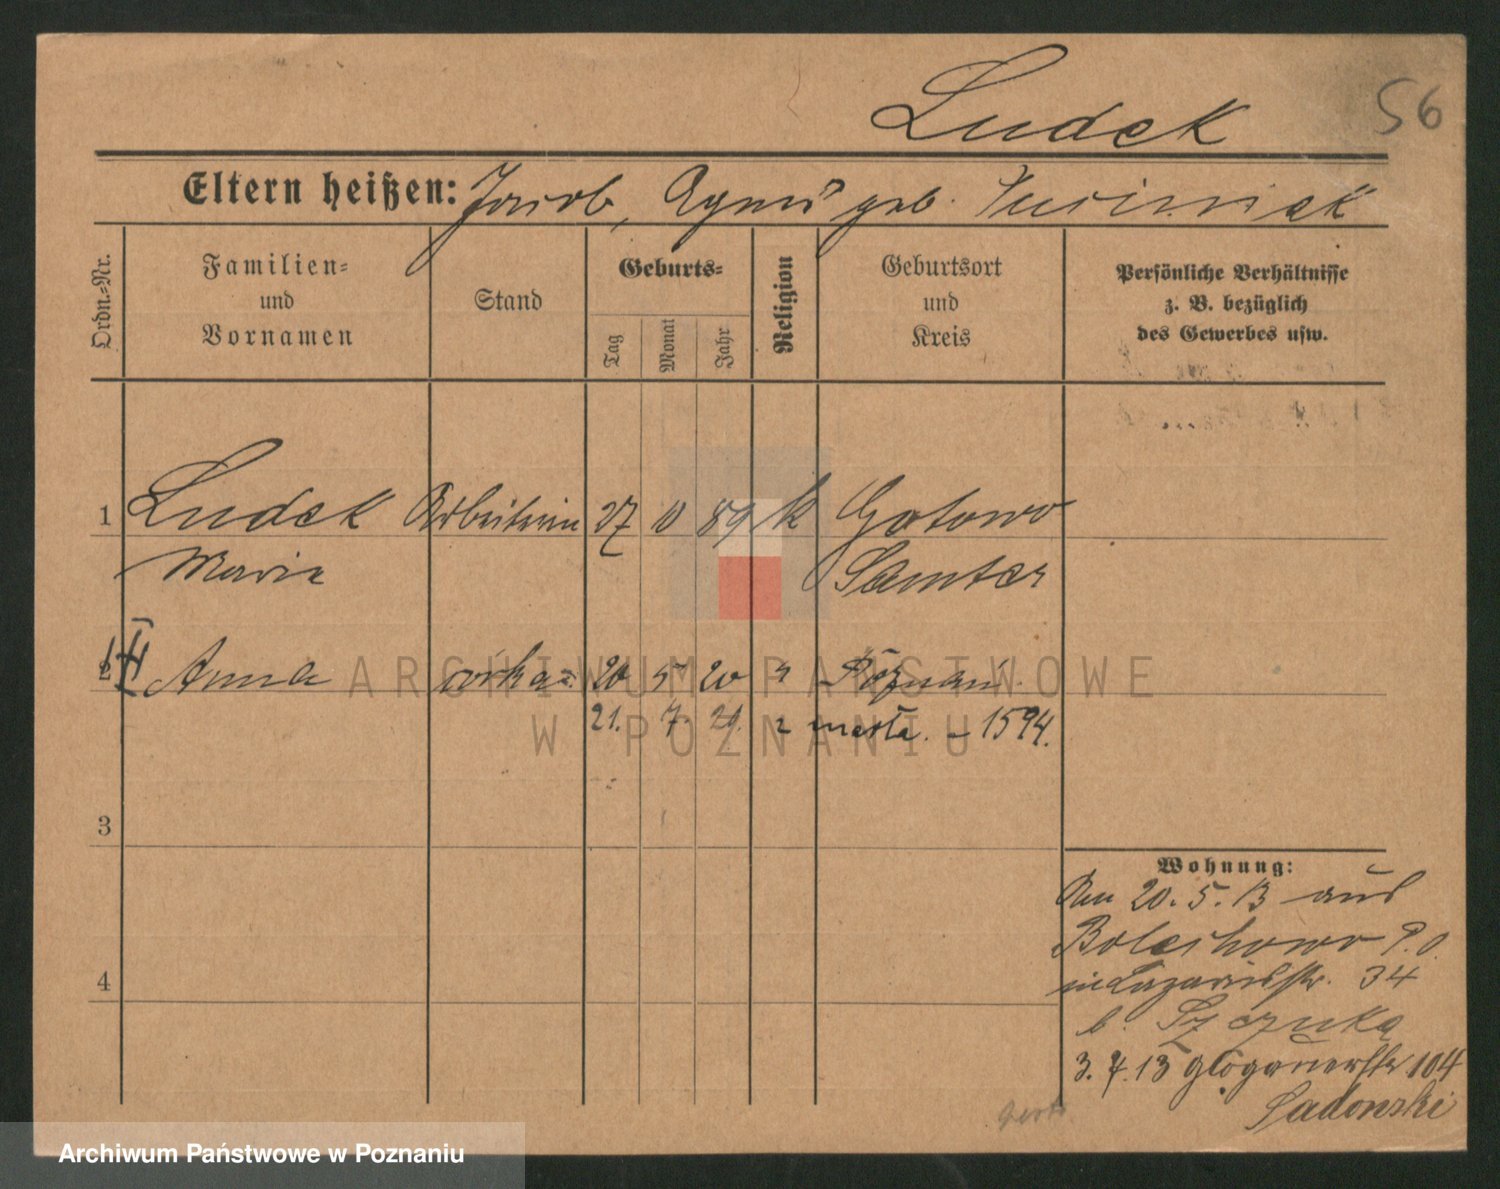 Ludek
56
Eltern heißen: Jacob, Agnes geb.
Ordn.=Nr.
Familien=
und
Vornamen
Stand
Geburts=
Tag
Monat
Jahr
Religion
Geburtsort
und
Kreis
Persönliche Verhältnisse
z. B. bezüglich
des Gewerbes usw.
1 Ludek Arbeiterin 27 10 89 k Gotowo
Maria Samter
2 II Anna córka 20 5 20 " Poznań
21. 7. 21. zmarła. – 1594.
3
4
Wohnung:
Am 20. 5. 13 aus
Bolechowo P. O.
in Lazarusstr. 34
b. Szczuka
3. 7. 13 Glogauerstr 104
Sadowski
ARCHIWUM PAŃSTWOWE
W POZNANIU
Archiwum Państwowe w Poznaniu